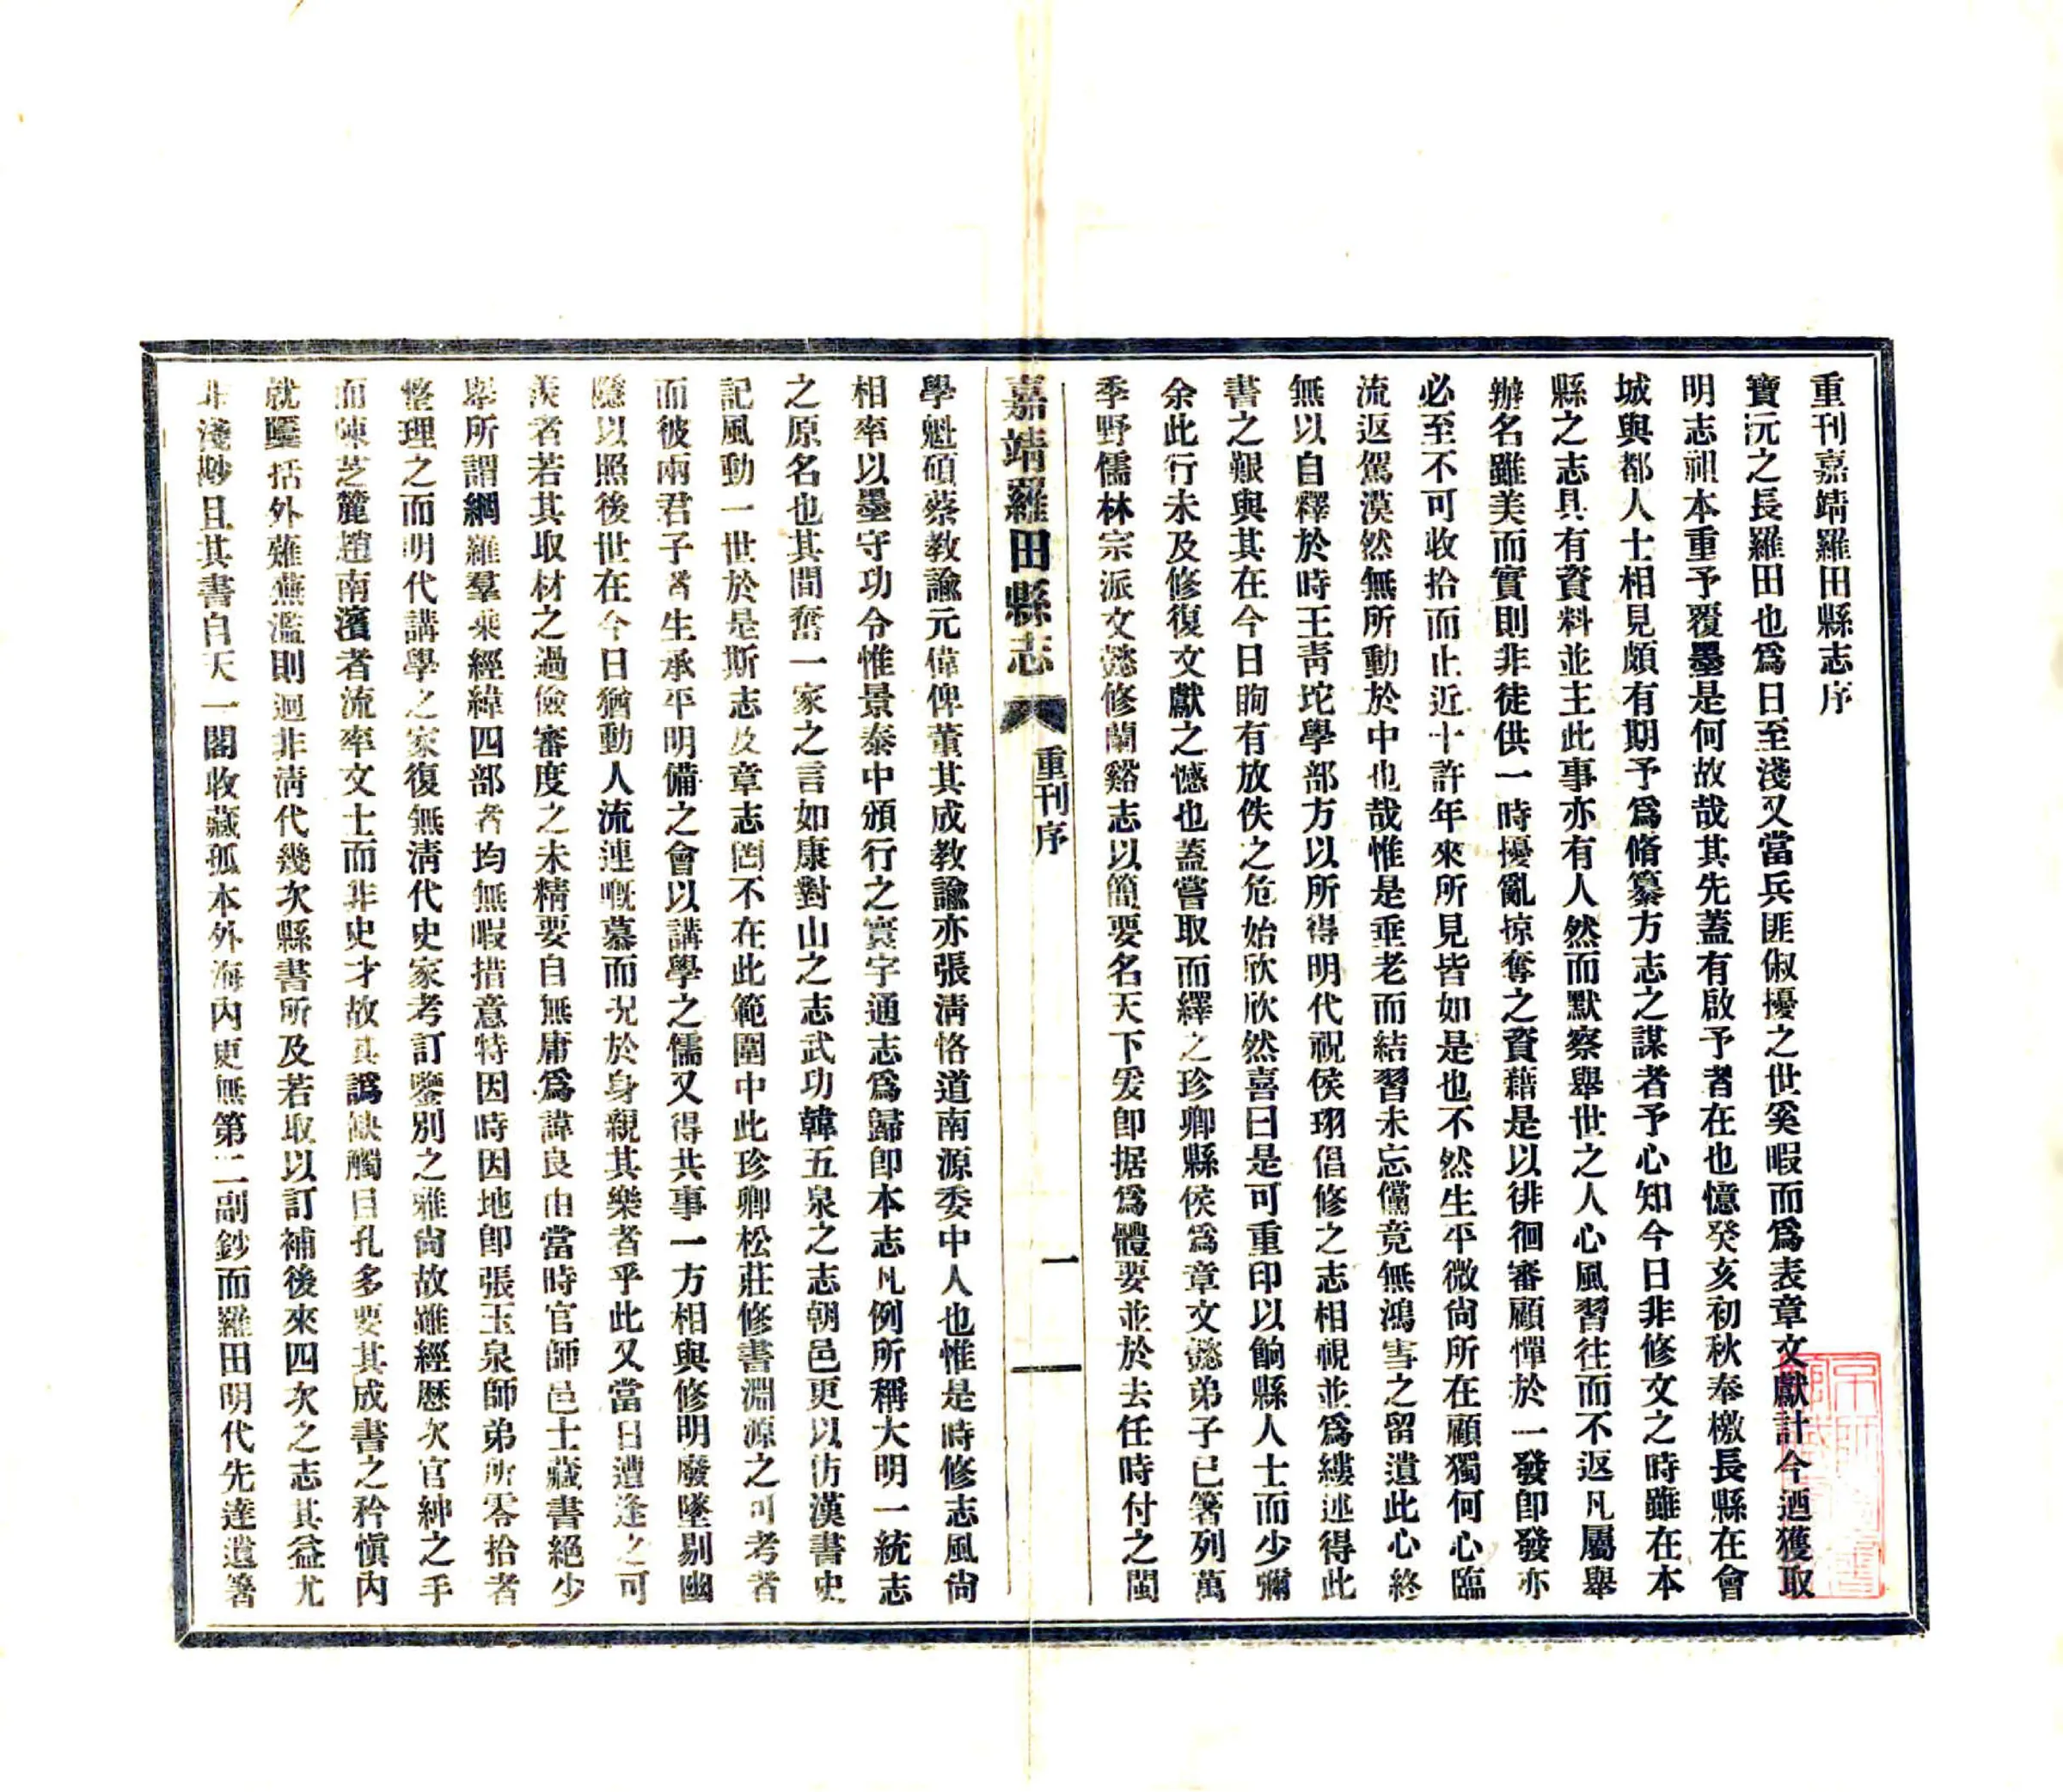 重刊嘉靖羅田縣志序
寶沅之長羅田也爲日至淺又當兵匪俶擾之世奚暇而爲表章文獻計今迺獲取
明志祖本重予覆墨是何故哉其先蓋有啟予者在也憶癸亥初秋奉檄長縣在會
城與都人士相見頗有期予爲脩纂方志之謀者予心知今日非修文之時雖在本
縣之志具有資料並主此事亦有人然而默察舉世之人心風習往而不返凡屬舉
辦名雖美而實則非徒供一時擾亂掠奪之資藉是以徘徊審顧憚於一發卽發亦
必至不可收拾而止近十許年來所見皆如是也不然生平微尙所在顧獨何心臨
流返駕漠然無所動於中也哉惟是垂老而結習未忘儻竟無鴻雪之留遺此心終
無以自釋於時王靑垞學部方以所得明代祝侯珝倡修之志相視並爲縷述得此
書之艱與其在今日眴有放佚之危始欣欣然喜曰是可重印以餉縣人士而少彌
余此行未及修復文獻之憾也蓋嘗取而繹之珍卿縣侯爲章文懿弟子已箸列萬
季野儒林宗派文懿修蘭谿志以簡要名天下爰卽据爲體要並於去任時付之閩
嘉靖羅田縣志 重刊序 一
學魁碩蔡敎諭元偉俾董其成敎諭亦張淸恪道南源委中人也惟是時修志風尙
相率以墨守功令惟景泰中頒行之寰宇通志爲歸卽本志凡例所稱大明一統志
之原名也其間奮一家之言如康對山之志武功韓五泉之志朝邑更以仿漢書史
記風動一世於是斯志及章志囿不在此範圍中此珍卿松莊修書淵源之可考者
而彼兩君子者生承平明備之會以講學之儒又得共事一方相與修明廢墜剔幽
隱以照後世在今日猶動人流連慨慕而況於身親其樂者乎此又當日遭逢之可
羨者若其取材之過儉審度之未精要自無庸爲諱良由當時官師邑士藏書絕少
舉所謂網羅羣乘經緯四部者均無暇措意特因時因地卽張玉泉師弟所零拾者
整理之而明代講學之家復無淸代史家考訂鑒別之雅尙故雖經歷次官紳之手
而陳芝麓趙南濱者流率文士而非史才故其譌缺觸目孔多要其成書之矜愼內
就櫽括外薙蕪濫則迥非淸代幾次縣書所及若取以訂補後來四次之志其益尤
非淺尟且其書自天一閣收藏孤本外海內更無第二副鈔而羅田明代先達遺箸